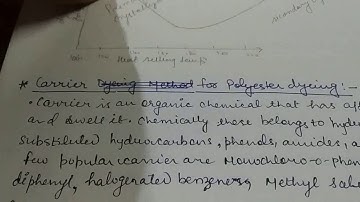 Heat setting temp
* Carrier Dyeing Method for Polyester dyeing:-
. Carrier is an organic chemical that has aff
and swell it. Chemically these belongs to hydr
substituted hydrocarbons, phenols, amides, a
few popular carrier are Monochloro-o-phen
diphenyl, halogenated benzenes, Methyl sale